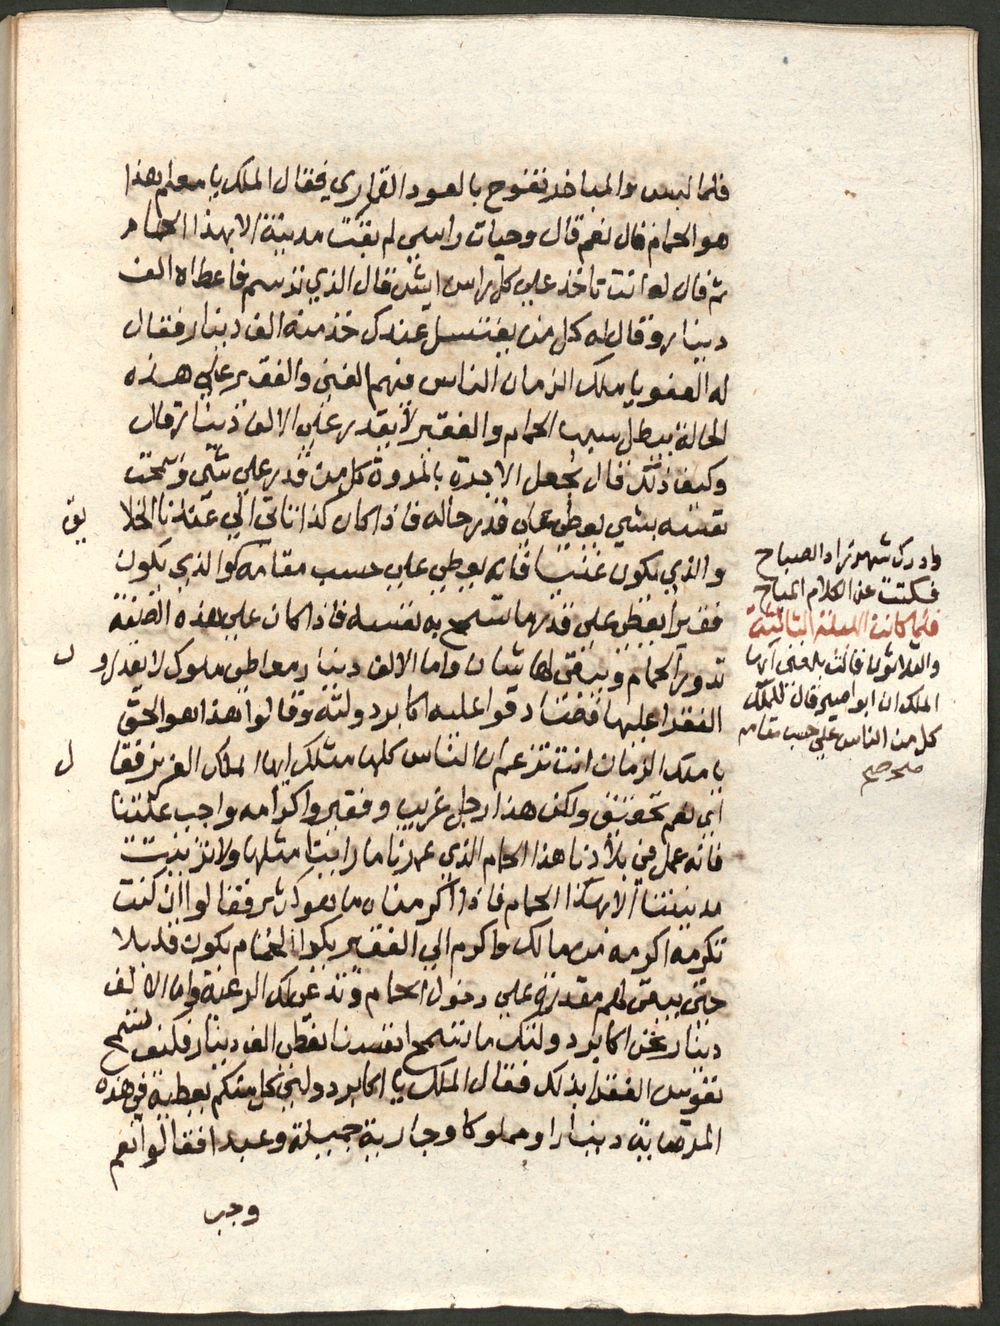 فلما لبس والمباخر تفوح بالعود القماري فقال الملك يا معلم هذا
هو الحمام قال نعم قال وحيات راسي لم بقت مدينتي الا بهذا الحمام
ثم قال له انت تاخذ علي كل راس ايش فقال الذي ترسم فاعطاه الف
دينار وقال له كل من يغتسل عندك خذ منه الف دينار فقال
له العفو يا ملك الزمان الناس فيهم الغني والفقير علي هذه
الحالة يبطل سبب الحمام والفقير لا يقدر علي الالف دينار قال
وكيف ذلك قال نجعل الاجرة بالمروة كل من قدر علي شي وسمحت
نفسه بشي يعطي علي قدر حاله فاذا كان كذا تاتي الي عندنا الخلا يق
والذي يكون غنيا فانه يعطي علي حسب مقامه والذي يكون
فقيرا يعطي علي قدر ما تسمح به نفسه فاذا كان علي هذه الصفه
تدور الحمام ويبقي لها شان واما الالف دينار معاطي ملوك لا يقدرو ن
الفقرا عليها فصادقوا عليه اكابر دولته وقالوا هذا هو الحق
يا ملك الزمان انت تزعم ان الناس كلها مثلك ايها الملك العزيز فقا ل
اي نعم ولكن هذا رجل غريب وفقير واكرامه واجب علينا
فانه عمل في بلادنا هذا الحمام الذي عمرنا ما راينا مثلها ولا تزينت
مدينتنا الا بهكذا الحمام فاذا اكرمناه ما هو كثير فقالوا ان كنت
تكرمه اكرمه من مالك واكرم الي الفقير بكرا الحمام يكون قليلا
حتي يبقي لهم مقدرة علي دخول الحمام وتدعي لك الرعية واما الالف
دينار نحن اكابر دولتك ما تسمح انفسنا نعطي الف دينار فكيف تسمح
نفوس الفقرا بذلك فقال الملك يا اكابر دولتي كل منكم يعطيه في هذه
المرة مايه دينارا ومملوكا وجارية جميلة وعبدا فقالوا نعم
وجب
وادرك شهرزاد الصباح
فسكتت عن الكلام المباح
فلما كانت الليلة الثالثة
والثلاثون قالت بلغني ايها
الملك ان ابو اصير قال للملك
كل من الناس علي حسب مقامه
صح صح